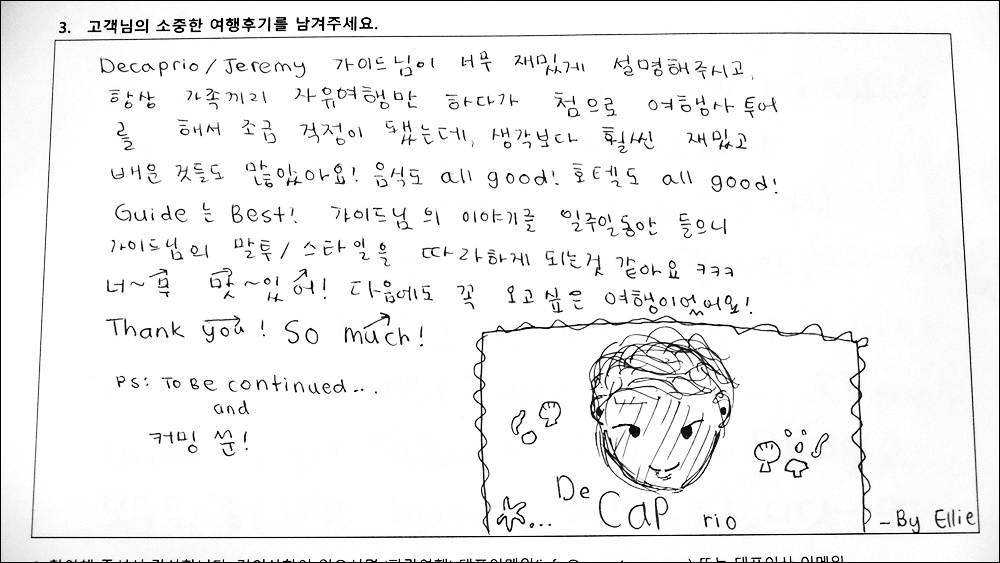 3. 고객님의 소중한 여행후기를 남겨주세요.
Decaprio/Jeremy 가이드님이 너무 재밌게 설명해주시고,
항상 가족끼리 자유여행만 하다가 첨으로 여행사 투어
를 해서 조금 걱정이 됐는데, 생각보다 훨씬 재밌고
배운 것들도 많았아요! 음식도 all good! 호텔도 all good!
Guide는 Best! 가이드님의 이야기를 일주일동안 들으니
가이드님의 말투/스타일을 따라하게 되는것 같아요 ㅋㅋㅋ
너~무 맛~있어! 다음에도 꼭 오고싶은 여행이었어요!
Thank you! So much!
PS: To Be continued...
and
커밍 쑨!
De Cap rio
- By Ellie